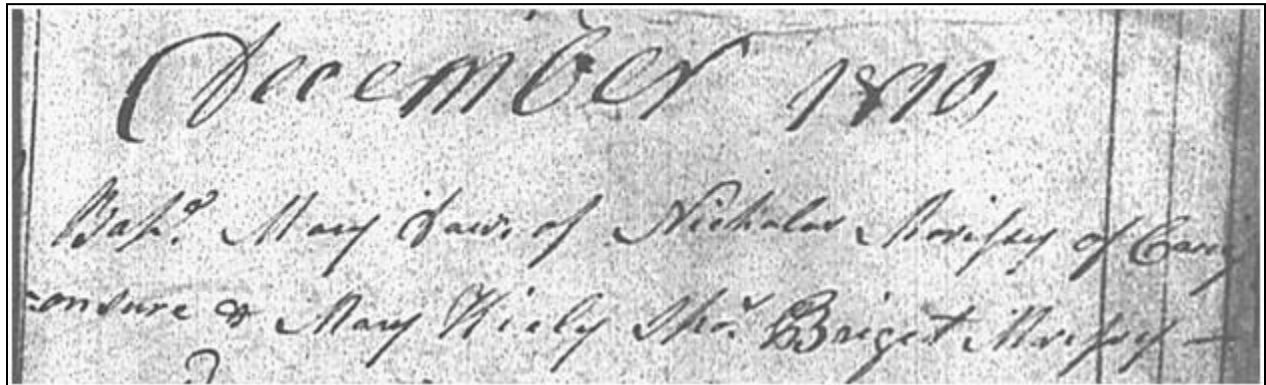 December 1810,
Bapd. Mary Daur. of Nicholas Morissy of Carrig
=onsure & Mary Kiely Spr. Briget Morissy —